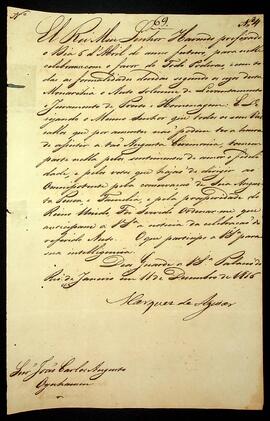 69
Nº 4
El Rey Meu Senhor Havendo prefixado
o Dia 6 d'Abril do anno futuro, para nelle
celebrar com o favor de Todo Poderoso, com to
das as formalidades
Monarchia o Auto Solemne do Levantamento
e Juramento de Preito e Homenagem. E
sejando o Mesmo Senhor que todos os seus
que por ausentes não podem ter a honra
de assistir a tão Augusta Ceremonia, tomem
parte nella pelos sentimentos de amor e fideli
dade, e pelos votos que hajão de dirigir ao
Omnipotente pela conservação da Sua Augusta
Pessoa e Familia, e pela prosperidade do
Reino Unido, Foi Servido Ordenar-me que
participasse a VSª a noticia da celebração do
referido Auto. O que participo a VSª para
sua intelligencia.
Deos Guarde a VSª Palacio do
Rio de Janeiro em 11 de Dezembro de 1816
Marquez de Aguiar
Snr. João Carlos Augusto
Oyenhausen